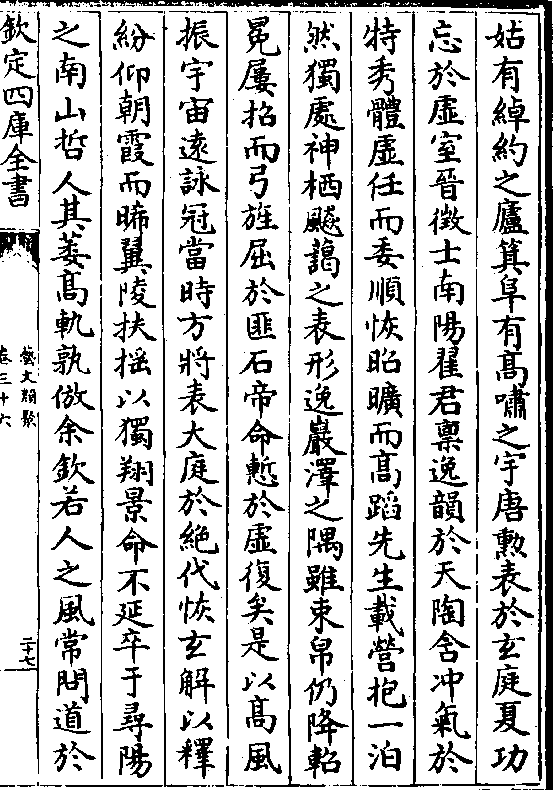 姑有綽約之廬箕阜有髙嘯之宇唐勲表於玄庭夏功
忘於虚室晉徴士南陽翟君禀逸韻於天陶含冲氣於
特秀體虚任而委順恢昭曠而髙蹈先生載營抱一泊
然獨處神栖飈藹之表形逸巖澤之隅雖束帛仍降軺
冕屢招而弓旌屈於匪石帝命慙於虚復矣是以髙風
振宇宙逺詠冠當時方將表大庭於絶代恢玄解以釋
紛仰朝霞而晞翼陵扶揺以獨翔景命不延卒于尋陽
之南山哲人其萎髙軌孰倣余欽若人之風常問道於
欽定四庫全書
藝文類聚
卷三十六
二十七